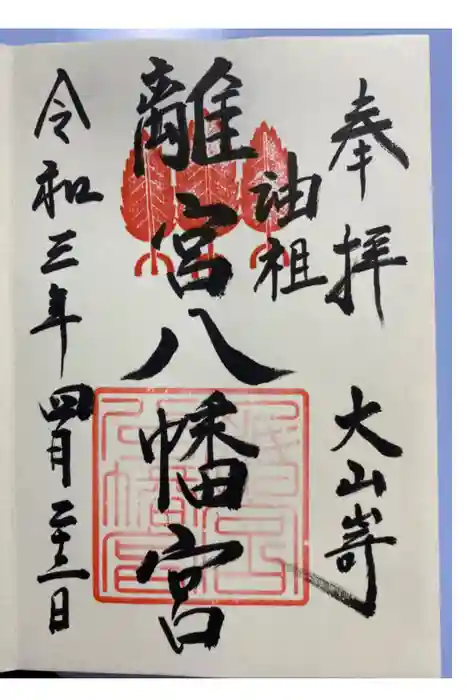 奉拝 大山嵜
油祖
離宮八幡宮
令和三年四月二十二日